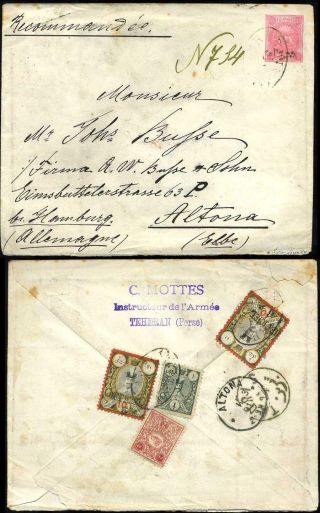 Recommandée.
N 734
Monsieur
Mr Johs Busse
p/ Firma A. W. Busse & Sohn
Eimsbuttelerstrasse 63 P
bei Hamburg, Altona
(Allemagne) (Elbe)
C. MOTTES
Instructeur de l'Armée
TEHERAN (Perse)
ALTONA